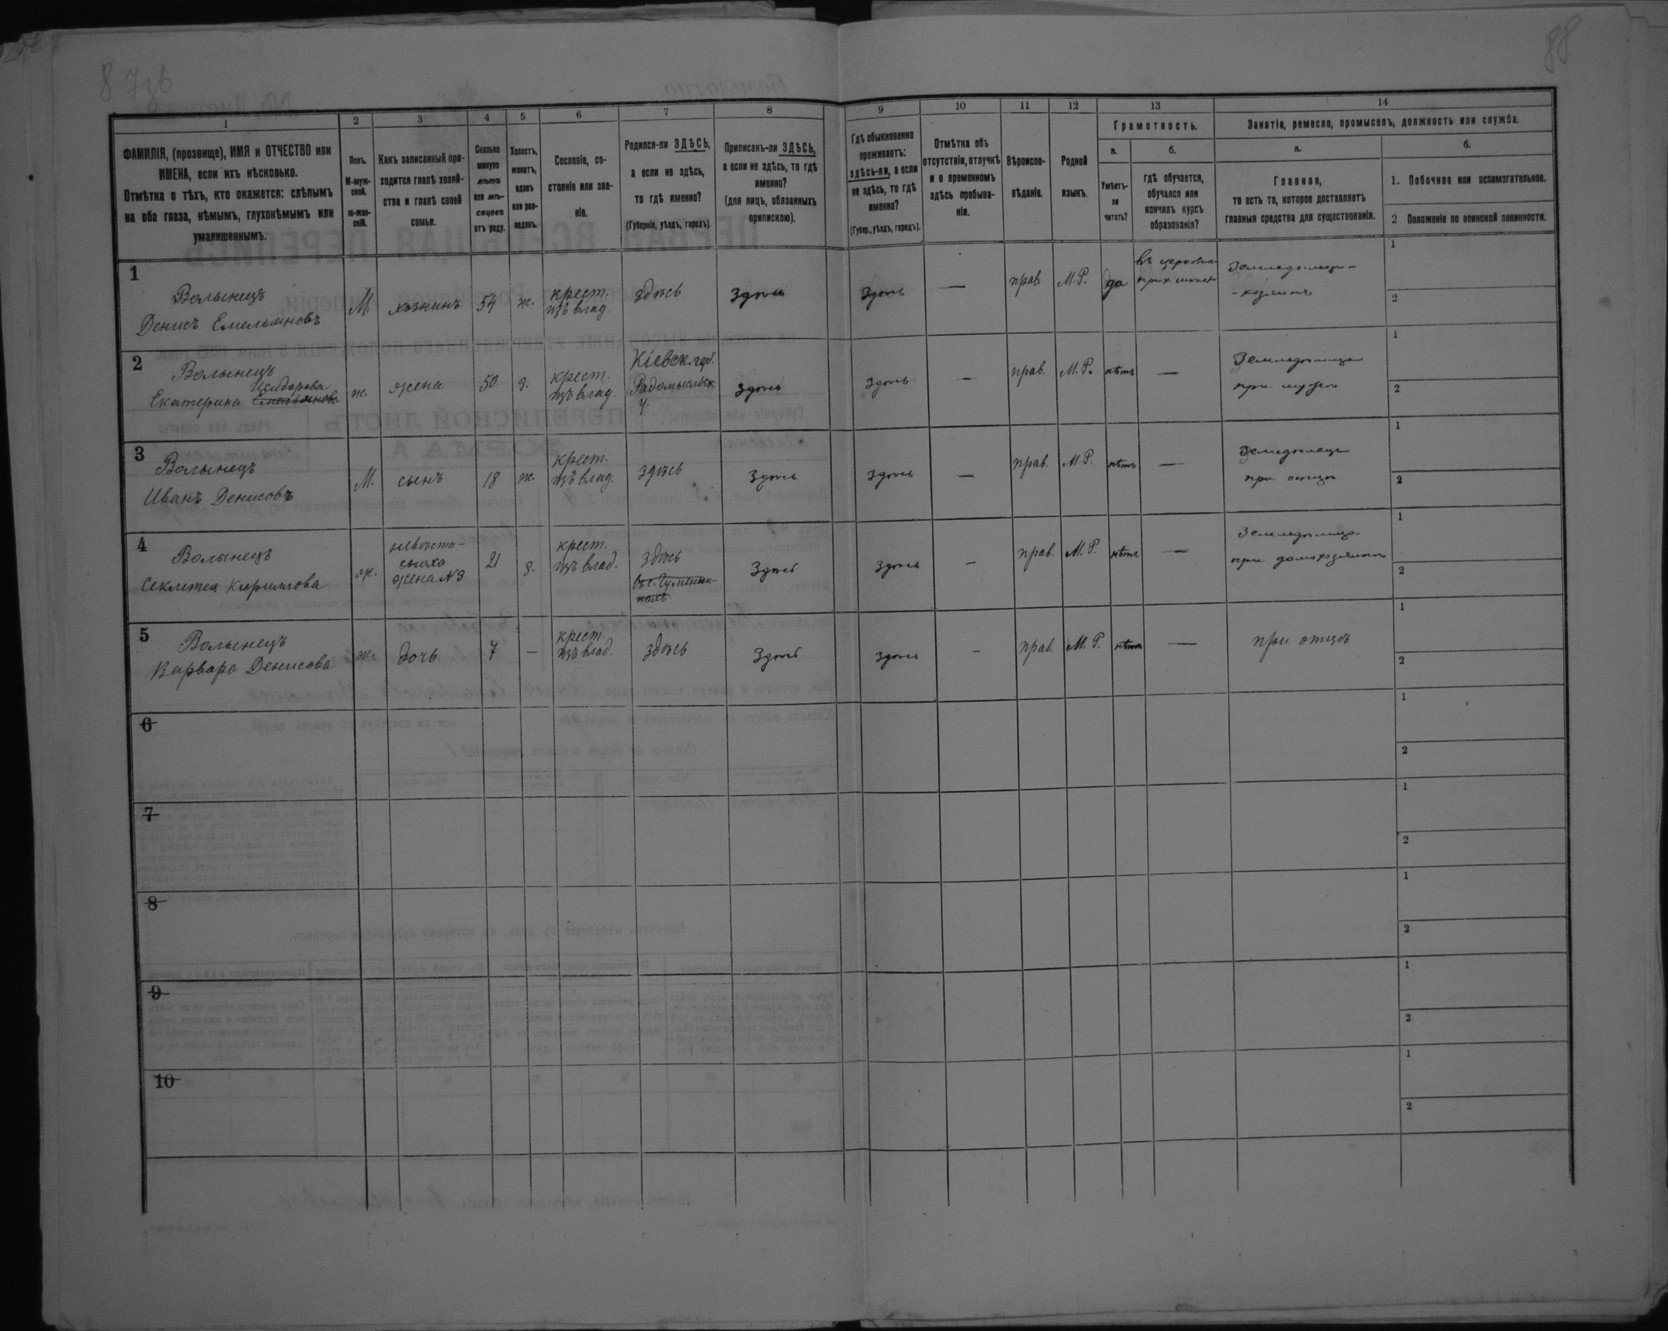 88
1
2
3
4
5
6
7
8
9
10
11
12
13
14
ФАМИЛІЯ, (прозвище), ИМЯ и ОТЧЕСТВО или
ИМЕНА, если ихъ нѣсколько.
Отмѣтка о тѣхъ, кто окажется: слѣпымъ
на оба глаза, нѣмымъ, глухонѣмымъ или
умалишеннымъ.
Полъ.
М-муж-
ской.
ж-жен-
скій.
Какъ записанный при-
ходится главѣ хозяй-
ства и главѣ своей
семьи.
Сколько
минуло
лѣтъ
или мѣ-
сяцевъ
отъ роду.
Холостъ,
женатъ,
вдовъ
или раз-
веденъ.
Сословіе, со-
стояніе или зва-
ніе.
Родился-ли ЗДѢСЬ,
а если не здѣсь,
то гдѣ именно?
(Губернія, уѣздъ, городъ).
Приписанъ-ли ЗДѢСЬ,
а если не здѣсь, то гдѣ
именно?
(для лицъ, обязанныхъ
припискою).
Гдѣ обыкновенно
проживаетъ:
здѣсь-ли, а если
не здѣсь, то гдѣ
именно?
(Губер., уѣздъ, городъ).
Отмѣтка объ
отсутствіи, отлучкѣ
и о временномъ
здѣсь пребыва-
ніи.
Вѣроиспо-
вѣданіе.
Родной
языкъ.
Грамотность.
а.
Умѣетъ-
ли
читать?
б.
гдѣ обучается,
обучался или
кончилъ курсъ
образованія?
Занятіе, ремесло, промыселъ, должность или служба.
а.
Главное,
то есть то, которое доставляетъ
главныя средства для существованія.
б.
1. Побочное или вспомогательное.
2 Положеніе по воинской повинности.
1
Волынецъ
Денисъ Емельяновъ
М.
хозяинъ
54
ж.
крест.
изъ влад.
здѣсь
здѣсь
здѣсь
—
прав.
М.Р.
да
въ церковно
прих. школѣ
Земледѣлецъ-
-хозяинъ
1
2
2
Волынецъ
Исидорова
Екатерина Емельянова
ж.
жена
50
з.
крест.
изъ влад.
Кіевск. губ.
Радомысльск
у.
здѣсь
здѣсь
—
прав.
М.Р.
нѣтъ
—
Земледѣлица
при мужѣ
1
2
3
Волынецъ
Иванъ Денисовъ
М.
сынъ
18
ж.
крест.
изъ влад.
здѣсь
здѣсь
здѣсь
—
прав.
М.Р.
нѣтъ
—
Земледѣлецъ
при отцѣ
1
2
4
Волынецъ
Секлетея Кирилова
ж.
невѣстка-
сноха
жена №3
21
з.
крест.
изъ влад.
здѣсь
здѣсь
здѣсь
—
прав.
М.Р.
нѣтъ
—
Земледѣлица
при домохозяинѣ
1
2
5
Волынецъ
Варвара Денисова
ж.
дочь
7
—
крест.
изъ влад.
здѣсь
здѣсь
здѣсь
—
прав.
М.Р.
нѣтъ
—
при отцѣ
1
2
6
1
2
7
1
2
8
1
2
9
1
2
10
1
2